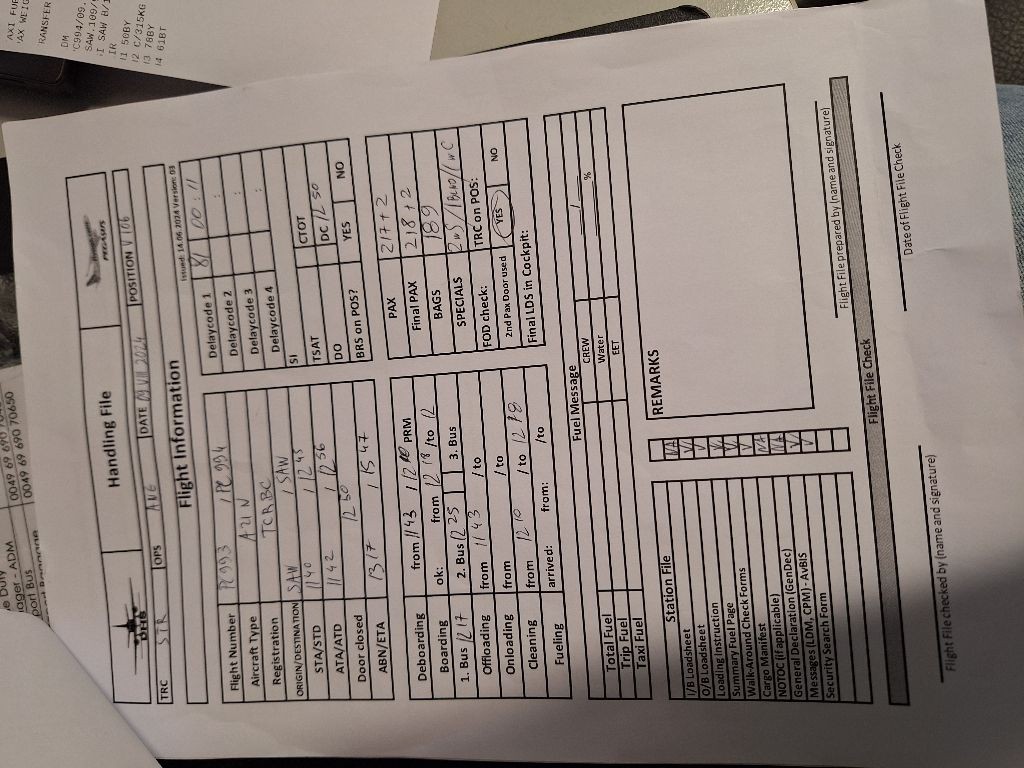 Handling File
PERRSON
TRC STR OPS ANG DATE 09 VII 2024 POSITION V 106
Flight Information
Issued: 14.06.2024 Version: 03
Flight Number PC993 / PC 994
Aircraft Type A21N
Registration TCRBC
ORIGIN/DESTINATION SAW / SAW
STA/STD 1140 / 1245
ATA/ATD 1142 / 1256
Door closed 1250
ABN/ETA 1317 / 1547
Delaycode 1 81 00:11
Delaycode 2 :
Delaycode 3 :
Delaycode 4 :
SI
TSAT CTOT
DO DC 1250
BRS on POS? YES NO
Deboarding from 1143 / PRM
Boarding ok: from 1218 /to 12
1. Bus 1217 2. Bus 1225 3. Bus
Offloading from 1143 /to
Onloading from /to
Cleaning from 1210 /to 1218
Fueling arrived: from: /to
PAX 217+2
Final PAX 218+2
BAGS 189
SPECIALS
FOD check: TRC on POS:
2nd Pax Door used YES NO
Final LDS in Cockpit:
Fuel Message
Total Fuel CREW /
Trip Fuel Water %
Taxi Fuel EET
Station File
I/B Loadsheet NA
O/B Loadsheet V
Loading Instruction V
Summary Fuel Page V
Walk-Around Check Forms V
Cargo Manifest NA
NOTOC (If applicable) NA
General Declaration (GenDec) V
Messages (LDM, CPM) - AvBIS V
Security Search Form
REMARKS
Flight File prepared by (name and signature)
Flight File Check
Flight File checked by (name and signature)
Date of Flight File Check
ager - ADM 0049 69 690
port Bus 0049 69 690 70650
RANSFER
DM
SAW
I SAW B/1
I2 C/315KG